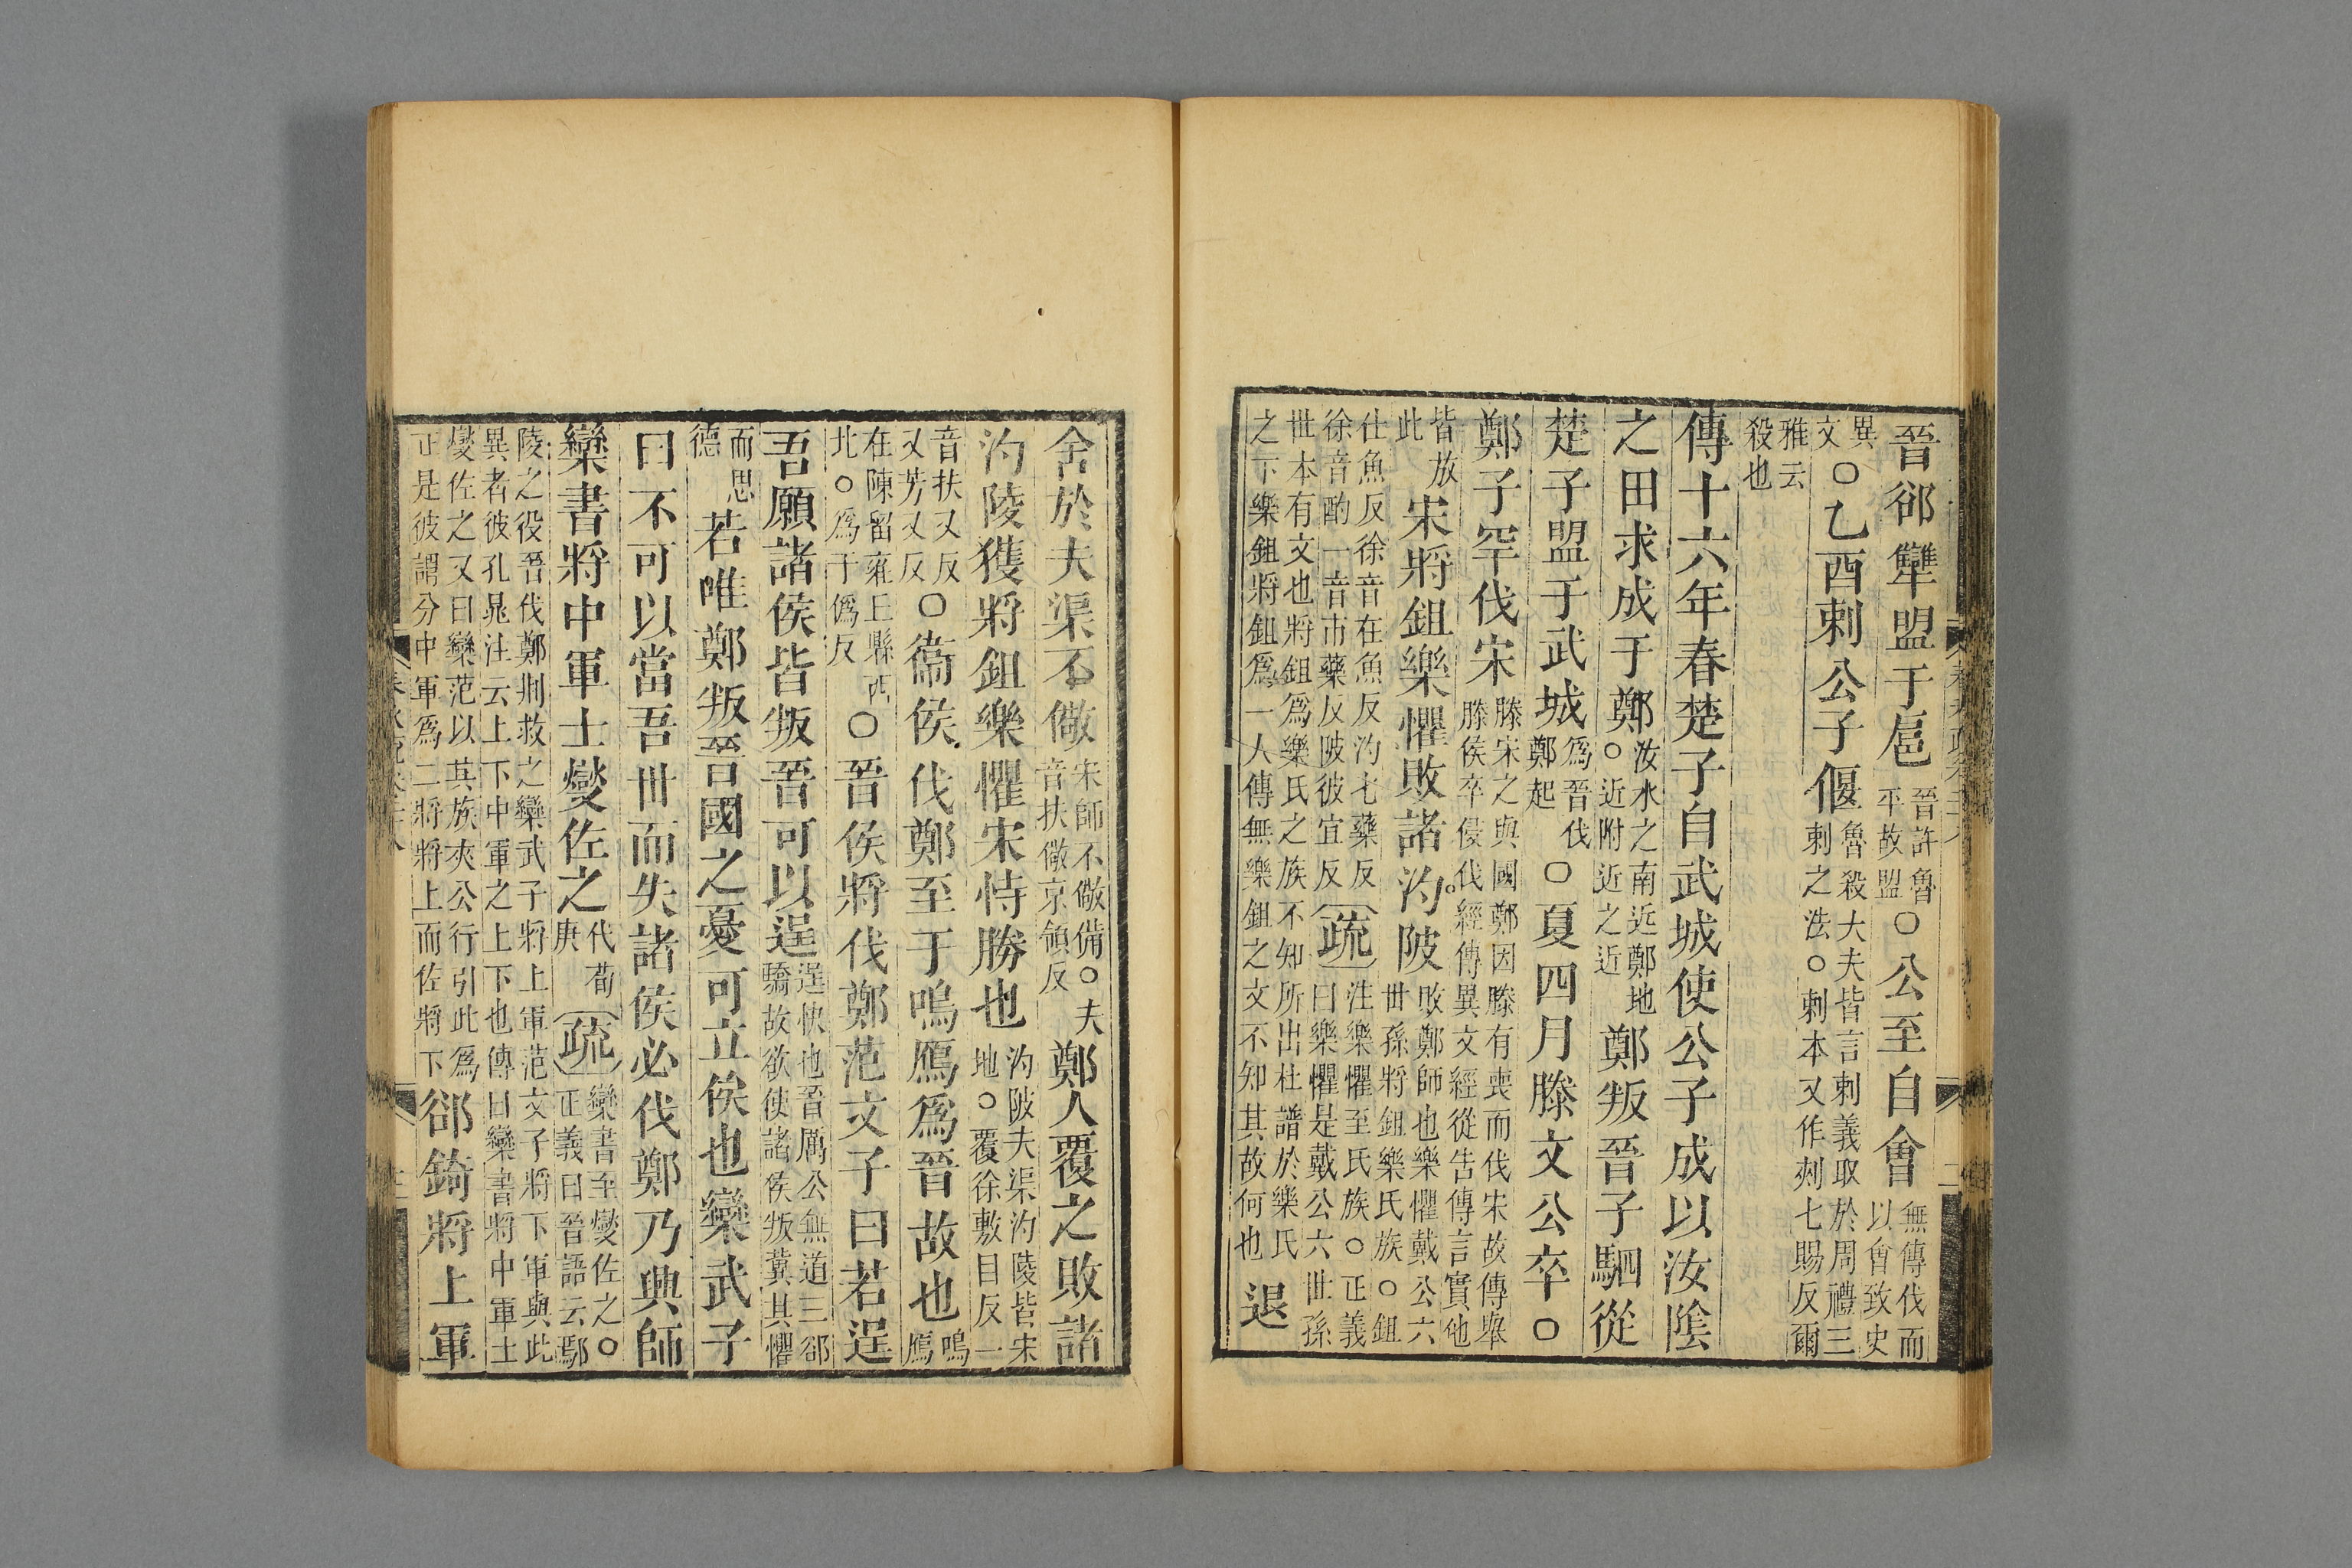 晉郤犫盟于扈晉許魯平故盟○公至自會無傳伐而以會致史
異文○乙酉刺公子偃魯殺大夫皆言刺義取於周禮三刺之法○刺本又作刾七賜反爾
雅云殺也
傳十六年春楚子自武城使公子成以汝陰
之田求成于鄭汝水之南近鄭地○近附近之近鄭叛晉子駟從
楚子盟于武城爲晉伐鄭起○夏四月滕文公卒○
鄭子罕伐宋滕宋之與國鄭因滕有喪而伐宋故傳舉滕侯卒侵伐經傳異文經從告傳言實他
皆放此宋將鉏樂懼敗諸汋陂敗鄭師也樂懼戴公六世孫將鉏樂氏族○鉏
仕魚反徐音在魚反汋七藥反徐音酌一音市藥反陂彼宜反疏注樂懼至氏族○正義曰樂懼是戴公六世孫
世本有文也將鉏爲樂氏之族不知所出杜譜於樂氏之下樂鉏將鉏爲一人傳無樂鉏之文不知其故何也退
舍於夫渠不儆宋師不儆備○夫音扶儆京領反鄭人覆之敗諸
汋陵獲將鉏樂懼宋恃勝也汋陂夫渠汋陵皆宋地○覆徐敷目反一
音扶又反又芳又反○衞侯伐鄭至于鳴鴈爲晉故也鳴鴈
在陳留雍丘縣西北○爲于僞反○晉侯將伐鄭范文子曰若逞
吾願諸侯皆叛晉可以逞逞快也晉厲公無道三郤驕故欲使諸侯叛冀其懼
而思德若唯鄭叛晉國之憂可立俟也欒武子
曰不可以當吾世而失諸侯必伐鄭乃興師
欒書將中軍士燮佐之代荀庚疏欒書至燮佐之○正義曰晉語云鄢
陵之役晉伐鄭荆救之欒武子將上軍范文子將下軍與此異者彼孔晁注云上下中軍之上下也傳曰欒書將中軍士
燮佐之又曰欒范以其族夾公行引此爲正是彼謂分中軍爲二將將上而佐將下郤錡將上軍